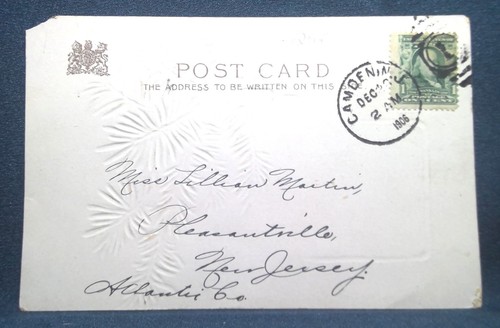 POST CARD
THE ADDRESS TO BE WRITTEN ON THIS S
CAMDEN, N.J.
DEC
2 AM
1906
Miss Lillian Martin,
Pleasantville,
New Jersey.
Atlantic Co.